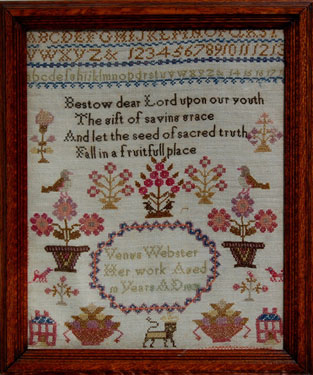 ABCDEFGHIJKLMNOPQRST
UVWXYZ& 12345678910111213
abcdefghijklmnopqrstuvwxyz& 14 15 16 17
Bestow dear Lord upon our youth
The gift of saving grace
And let the seed of sacred truth
Fall in a fruitfull place
Venus Webster
Her work Aged
Years AD